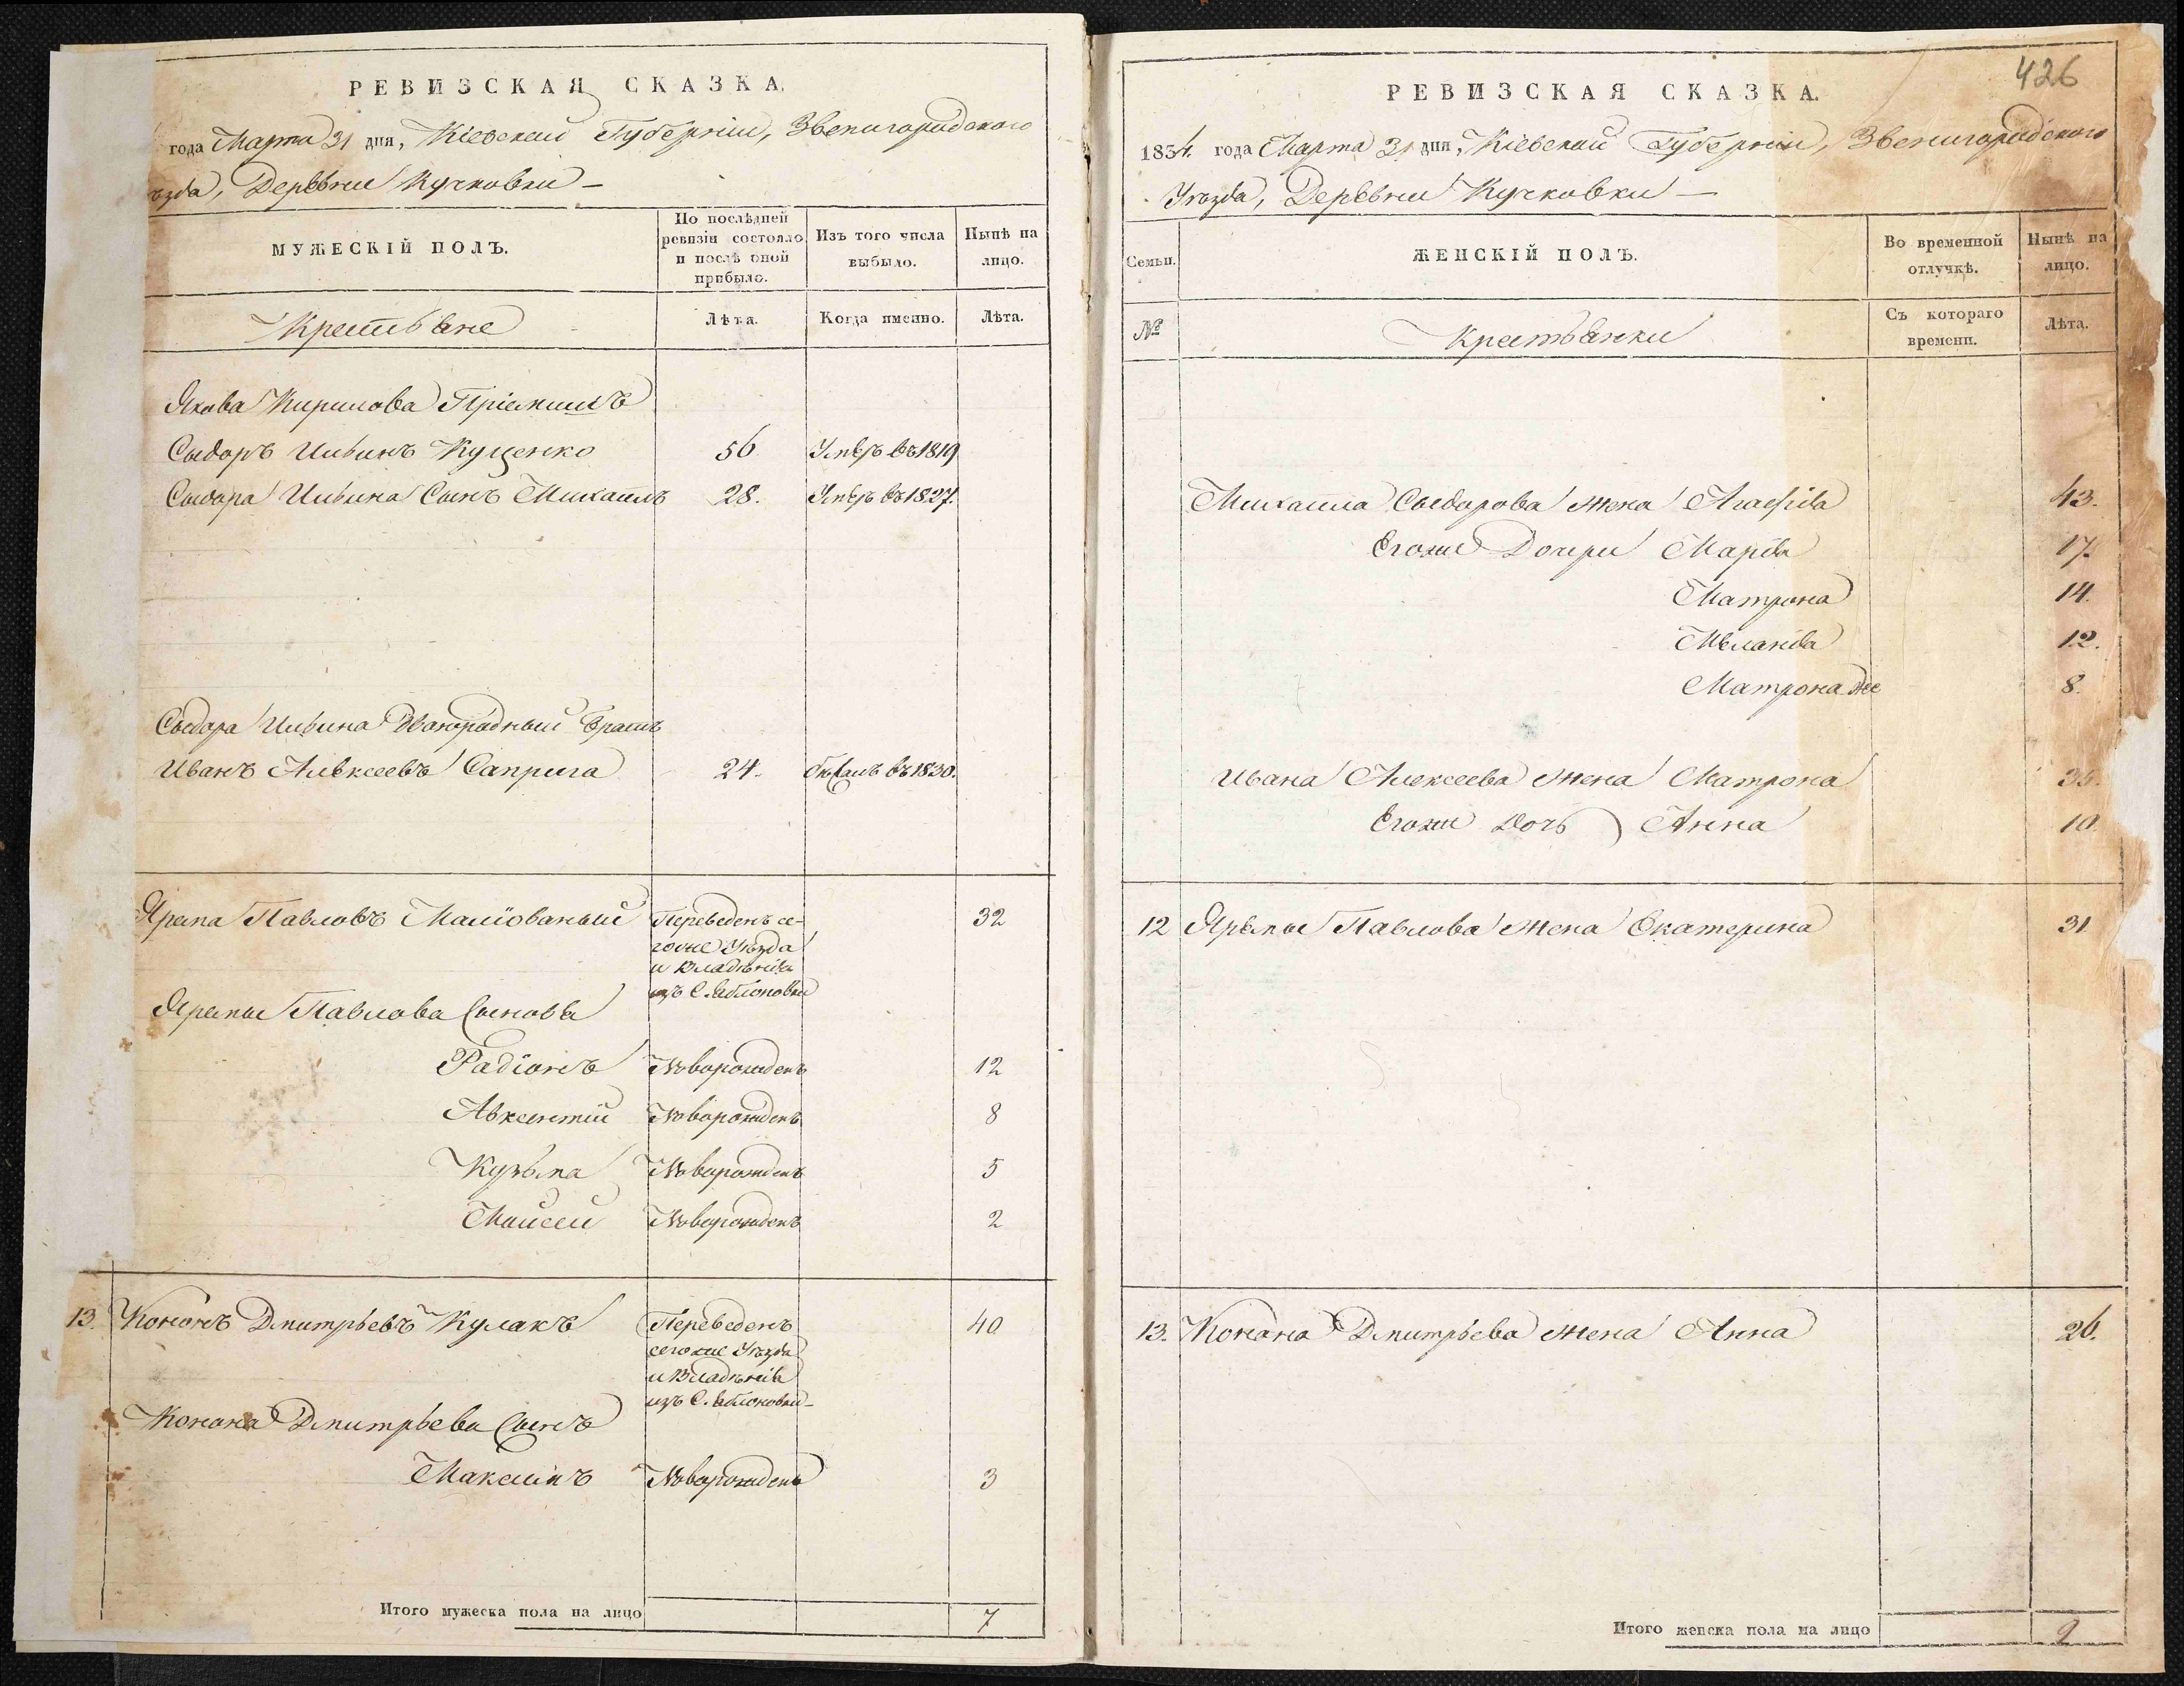 РЕВИЗСКАЯ СКАЗКА.
года Марта 31 дня, Кіевской Губерніи, Звенигородского
ѣзда, Деревни Кучковки
МУЖЕСКІЙ ПОЛЪ.
По послѣдней ревизіи состояло и послѣ оной прибыло.
Изъ того числа выбыло.
Нынѣ на лицо.
Крестьяне
Лѣта.
Когда именно.
Лѣта.
Якова Кирилова Пріемышъ
Сыдоръ Ильинъ Куценко 56 Умеръ въ 1819
Сыдора Ильина Сынъ Михаилъ 28. Умеръ въ 1827.
Сыдора Ильина Двоюродный братъ
Иванъ Алексеевъ Саприга 24. бежалъ въ 1830.
Ярема Павловъ Малёованый Переведенъ се- 32
гоже Уѣзда
и Владѣнія
изъ С. Яблоновки
Яремы Павлова Сыновья
Радіонъ Новорожденъ 12
Авксентій Новорожденъ 8
Кузьма Новорожденъ 5
Моисей Новорожденъ 2
13. Кононъ Дмитрьевъ Кулакъ Переведенъ 40
сегоже Уѣзда
и Владѣнія
изъ С. Яблоновки
Конона Дмитрьева Сынъ
Максимъ Новорожденъ 3
Итого мужеска пола на лицо 7
426
РЕВИЗСКАЯ СКАЗКА.
1834. года Марта 31 дня, Кіевской Губерніи, Звенигородского
Уѣзда, Деревни Кучковки
Семьи.
ЖЕНСКІЙ ПОЛЪ.
Во временной отлучкѣ.
Нынѣ на лицо.
№
Крестьянки
Съ котораго времени.
Лѣта.
Михаила Сыдорова Жена Агафія 43.
Егоже Дочери Марія 17.
Матрона 14.
Меланія 12.
Матрона же 8.
Ивана Алексеева Жена Матрона 35.
Егоже Дочь Анна 10.
12 Яремы Павлова Жена Екатерина 31
13. Конона Дмитрьева Жена Анна 26.
Итого женска пола на лицо 9